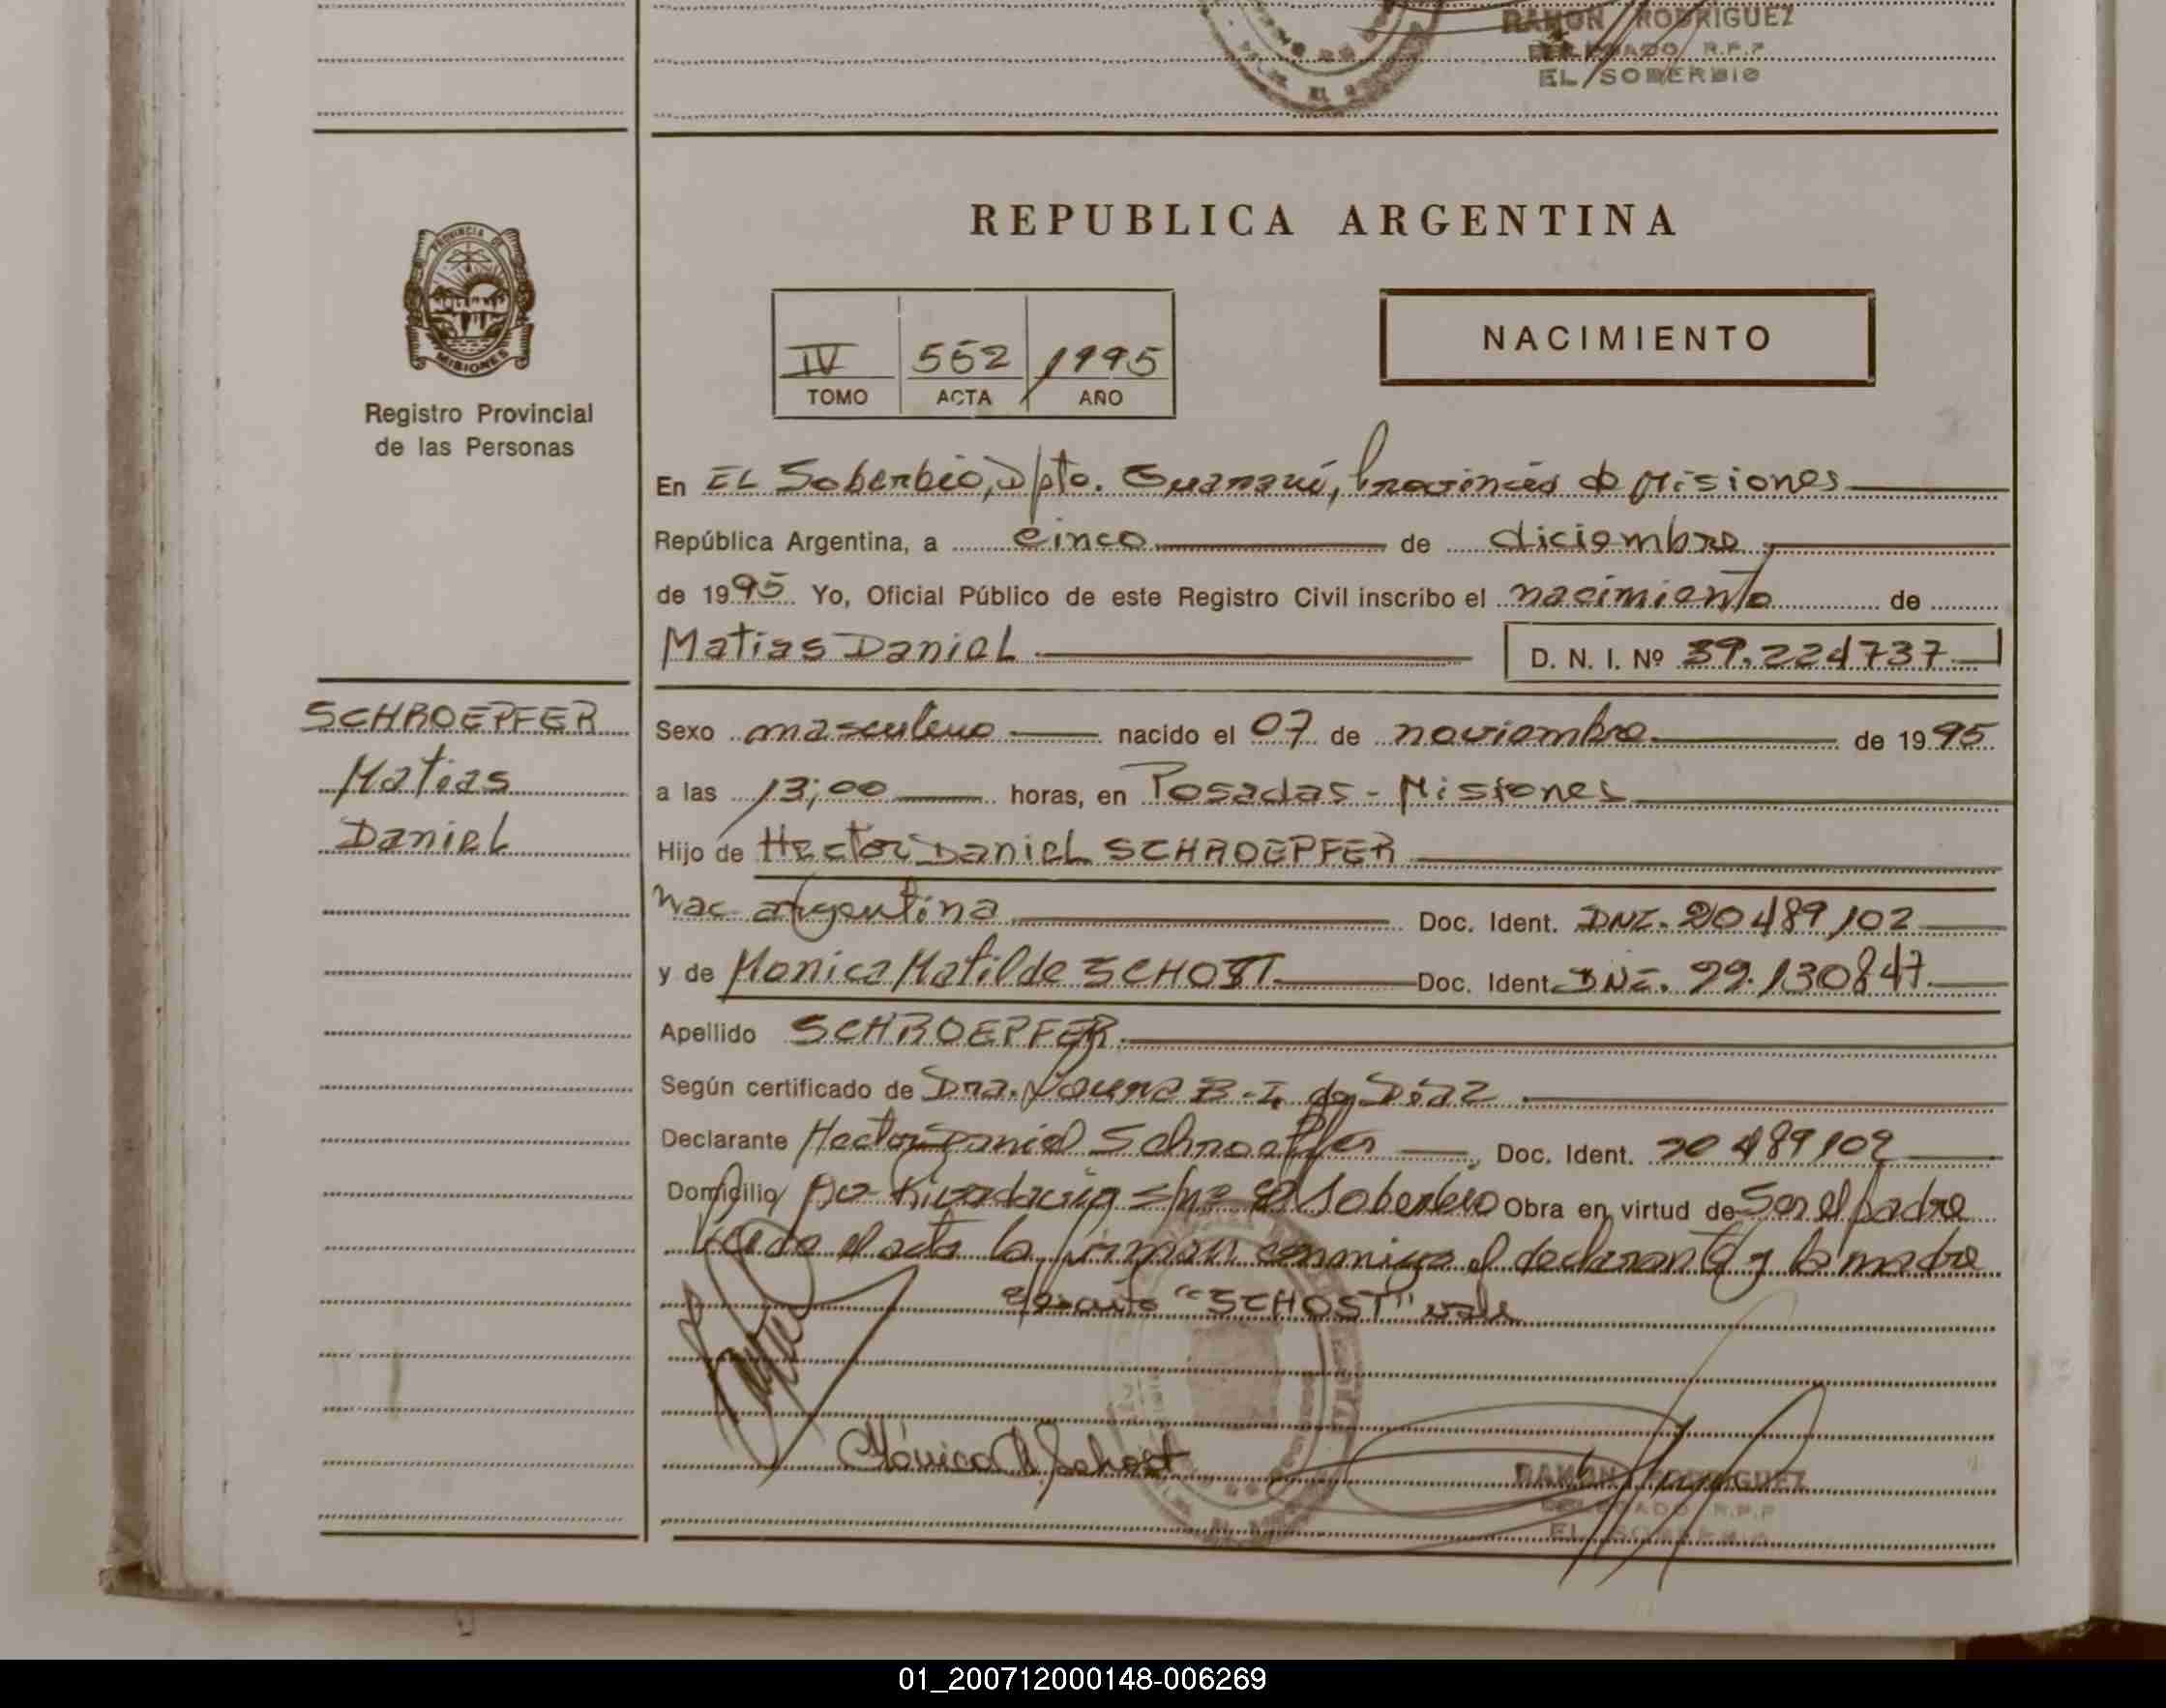 RAMON RODRIGUEZ
DELEGADO R.P.P
EL SOBERBIO
PROVINCIA DE
MISIONES
Registro Provincial
de las Personas
REPUBLICA ARGENTINA
IV 552 1995
TOMO ACTA AÑO
NACIMIENTO
En EL Soberbio, Dpto. Guaraní, Provincia de Misiones
República Argentina, a cinco de diciembre
de 1995 Yo, Oficial Público de este Registro Civil inscribo el nacimiento de
Matias Daniel D. N. I. Nº 39.224737
SCHROEPFER
Matias
Daniel
Sexo masculino nacido el 07 de noviembre de 1995
a las 13;00 horas, en Posadas - Misiones
Hijo de Hector Daniel SCHROEPFER
Nac argentina Doc. Ident. DNI. 20489102
y de Monica Matilde SCHOST Doc. Ident. DNI. 22.130847
Apellido SCHROEPFER
Según certificado de Dra. B. I. de Diaz
Declarante Hector Daniel Schroepfer, Doc. Ident. 20489102
Domicilio Av. Rivadavia s/nº El Soberbio Obra en virtud de Ser el padre
Leida el acta la firman conmigo el declarante y la madre
"SCHOST" vale
Mónica M. Schost
RAMON RODRIGUEZ
DELEGADO R.P.P
EL SOBERBIO
01_200712000148-006269